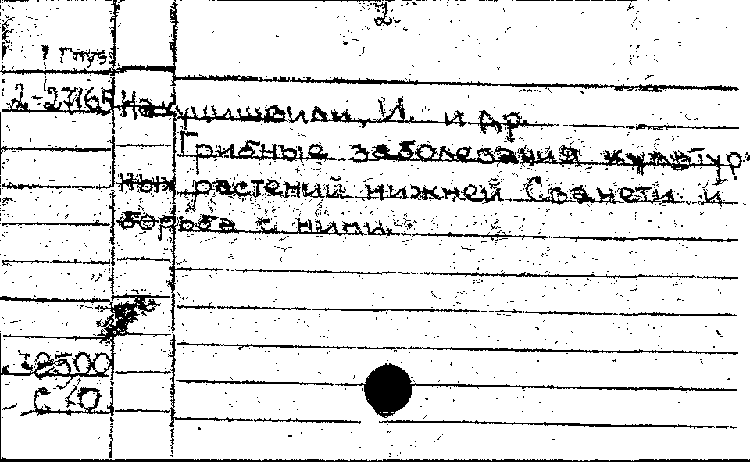 2.
Груз
2-27165 Нахуцишвили, И. и др.
Грибные заболевания культур-
ных растений нижней Сванети и
борьба с ними.
32500
С Ю.